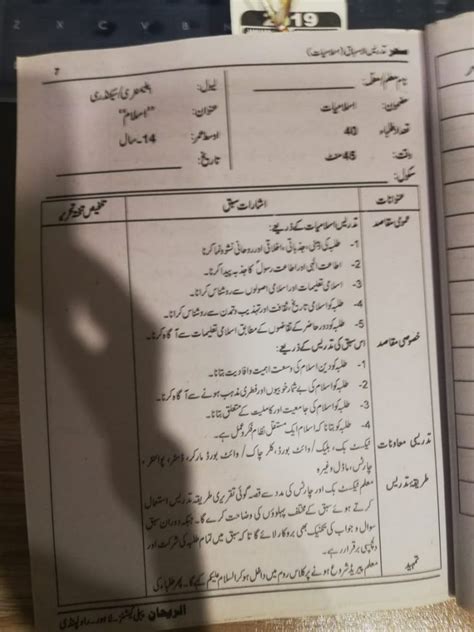 2019
تدریس الاسباق (اسلامیات)
7
نام معلم/معلمہ: لیول: ایلیمنٹری/سیکنڈری
مضمون: اسلامیات عنوان: "اسلام"
تعداد طلباء 40 اوسط عمر: 14-سال
وقت: 45 منٹ تاریخ:
سکول:
عنوانات اشارات سبق تلخیص تختہ تحریر
عمومی مقاصد تدریس اسلامیات کے ذریعے:
1- طلبہ کی دینی، جذباتی، اخلاقی اور روحانی نشوونما کرنا
2- اطاعت الٰہی اور اطاعت رسول کا جذبہ پیدا کرنا۔
3- اسلامی تعلیمات اور اسلامی اصولوں سے روشناس کرانا۔
4- طلبہ کو اسلامی تاریخ، ثقافت اور تہذیب و تمدن سے روشناس کرانا۔
5- طلبہ کو دور حاضر کے تقاضوں کے مطابق اسلامی تعلیمات سے آگاہ کرنا۔
خصوصی مقاصد اس سبق کی تدریس کے ذریعے:
1- طلبہ کو دین اسلام کی وسعت اہمیت و افادیت بتانا۔
2- طلبہ کو اسلام کی بے شمار خوبیوں اور فطری مذہب ہونے سے آگاہ کرنا۔
3- طلبہ کو اسلام کی جامعیت اور کاملیت کے متعلق بتانا۔
4- طلبہ کو بتانا کہ اسلام ایک مستقل نظام فکر و عمل ہے۔
تدریسی معاونات ٹیکسٹ بک، بلیک/وائٹ بورڈ، کلر چاک/وائٹ بورڈ مارکر، ڈسٹر، پوائنٹر،
چارٹس، ماڈل وغیرہ
طریقہ تدریس معلم ٹیکسٹ بک اور چارٹس کی مدد سے قصہ گوئی تقریری طریقہ تدریس استعمال
کرتے ہوئے سبق کے مختلف پہلوؤں کی وضاحت کرے گا۔ جبکہ دوران سبق
سوال و جواب کی تکنیک بھی بروکار لائے گا تاکہ سبق میں تمام طلبہ کی شرکت اور
دلچسپی برقرار رہے۔
تمہید معلم پیریڈ شروع ہونے پر کلاس روم میں داخل ہو کر السلام علیکم کہے گا۔ پھر طلباء کی
الریحان پبلی کیشنز لاہور۔ راولپنڈی